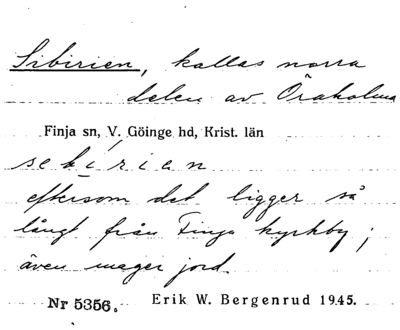 Sibirien, kallas norra
delen av Öraholma
Finja sn, V. Göinge hd, Krist. län
sebirian
eftersom det ligger så
långt från Finja kyrkby;
även mager jord.
Nr 5356. Erik W. Bergenrud 1945.